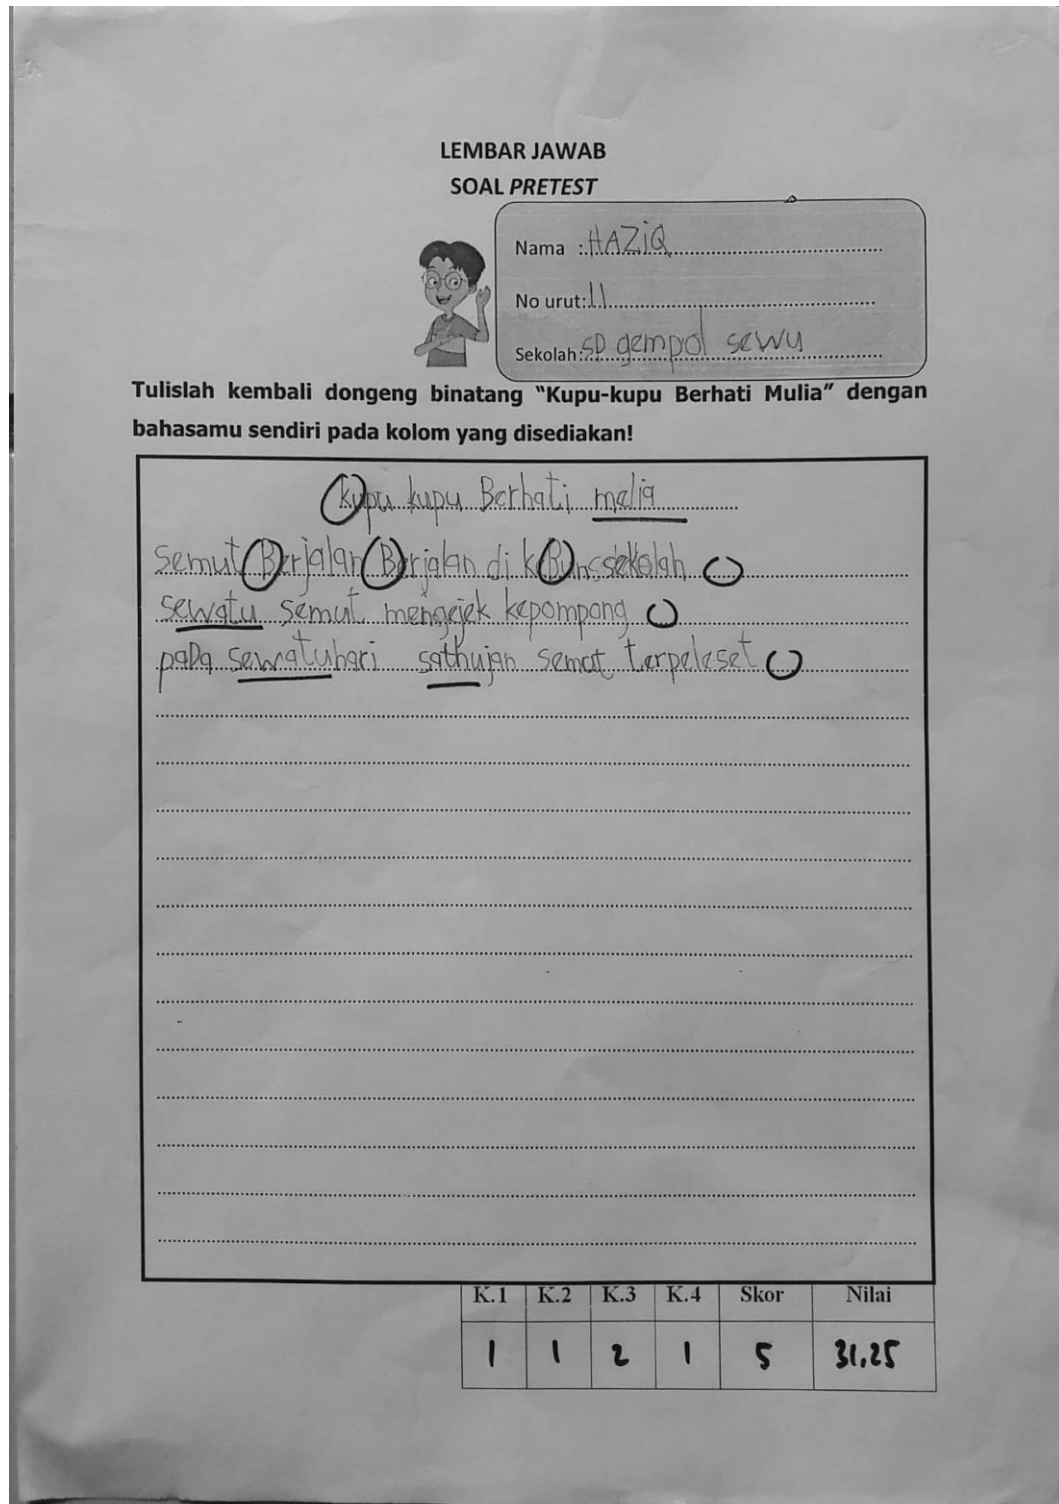 LEMBAR JAWAB
SOAL PRETEST
Nama :.HAZiQ
No urut:.11
Sekolah:.SD gempol sewu
Tulislah kembali dongeng binatang “Kupu-kupu Berhati Mulia” dengan
bahasamu sendiri pada kolom yang disediakan!
kupu kupu Berhati melia
semut Berjalan Berjalan di keBun sekolah
sewatu semut mengejek kepompong
paDa sewatuhari sathujan semut terpeleset
K.1 K.2 K.3 K.4 Skor Nilai
1 1 2 1 5 31.25